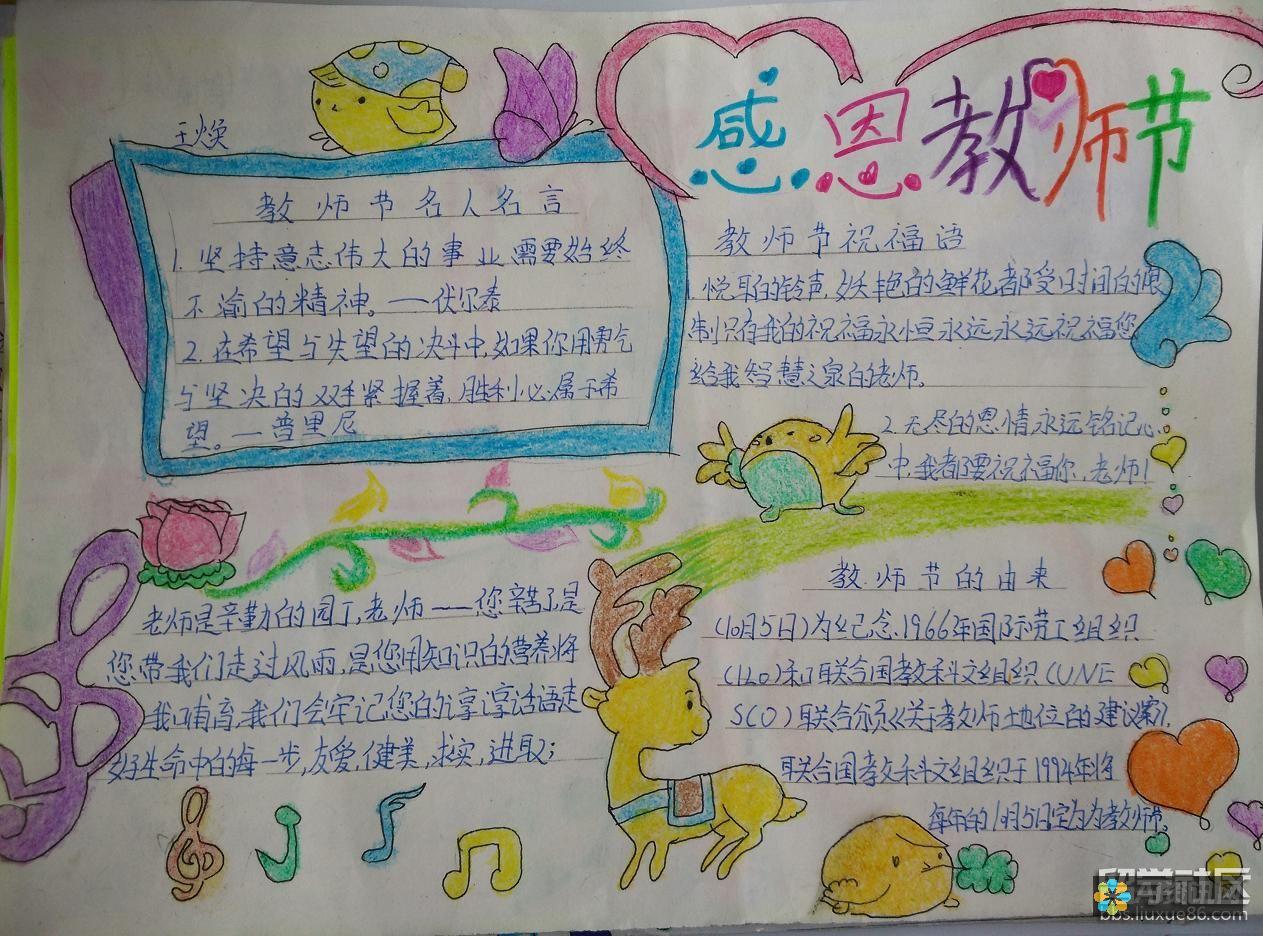 感恩教师节
王焕
教师节名人名言
1. 坚持意志伟大的事业需要始终
不渝的精神。——伏尔泰
2. 在希望与失望的决斗中,如果你用勇气
与坚决的双手紧握着,胜利必属于希
望。——普里尼
教师节祝福语
1. 悦耳的铃声,妖艳的鲜花,都受时间的限
制只有我的祝福永恒永远永远祝福您
给我智慧之泉的老师。
2. 无尽的恩情永远铭记心
中,我都要祝福你,老师!
老师是辛勤的园丁,老师——您辛苦了是
您带我们走过风雨,是您用知识的营养将
我哺育,我们会牢记您的谆谆话语走
好生命中的每一步,友爱,健美,求实,进取;
教师节的由来
(10月5日)为纪念1966年国际劳工组织
(ILO)和联合国教科文组织(UNE
SCO)联合《关于教师地位的建议案》,
联合国教文科组织于1994年将
每年的10月5日定为教师节。
留学社区
bbs.liuxue86.com